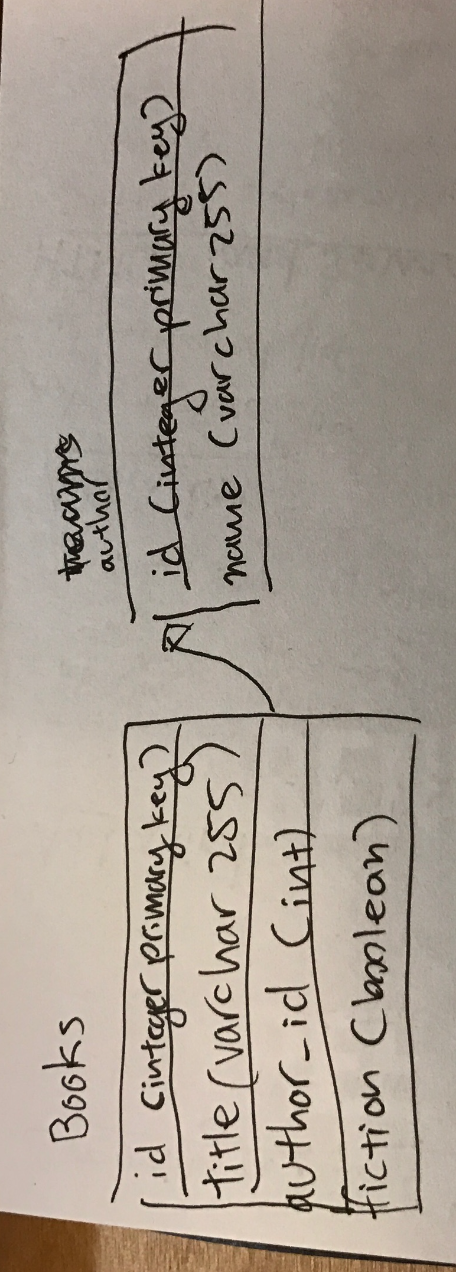 Books
id (integer primary key)
title (varchar 255)
author_id (int)
fiction (boolean)
author
id (integer primary key)
name (varchar 255)